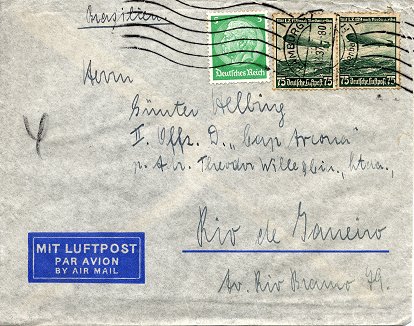 Brasilien
Deutsches Reich
HAMBURG
75 Deutsche Luftpost 75
75 Deutsche Luftpost 75
Herrn
Günter Helbing
II. Offz. D. „Cap Arcona"
p. Adr. Theodor Wille
Rio de Janeiro
Av. Rio Branco 79.
MIT LUFTPOST
PAR AVION
BY AIR MAIL